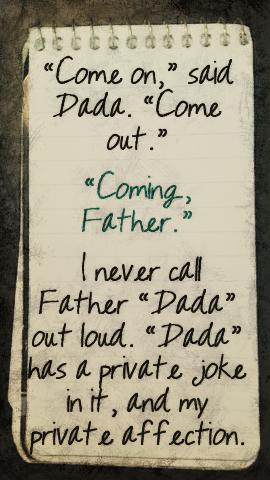 “Come on,” said
Dada. “Come
out.”
“Coming,
Father.”
I never call
Father “Dada”
out loud. “Dada”
has a private joke
in it, and my
private affection.